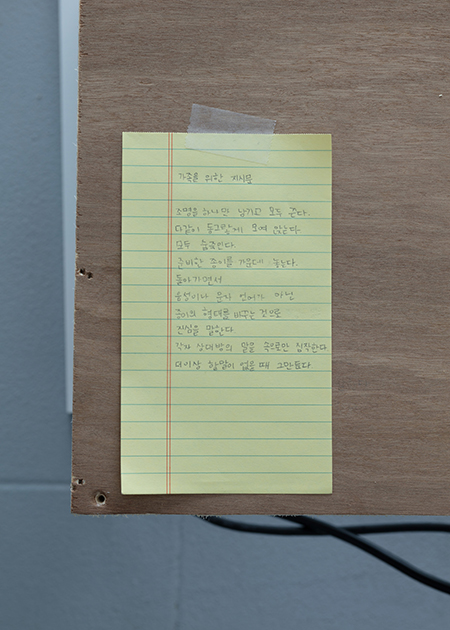 가족을 위한 지시문
조명을 하나만 남기고 모두 끈다.
다같이 동그랗게 모여 앉는다.
모두 침묵한다.
준비한 종이를 가운데 놓는다.
돌아가면서
음성이나 문자 언어가 아닌
종이의 형태를 바꾸는 것으로
진심을 말한다
각자 상대방의 말을 속으로만 짐작한다
더이상 할말이 없을 때 그만둔다